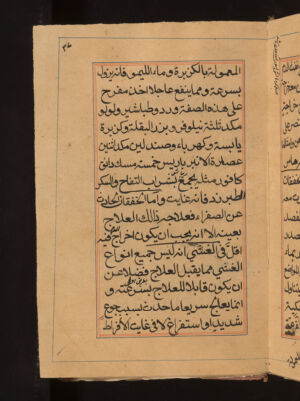 المعمولة بالكزبرة وماء الليمو فانه يزول
بسرعة ومما ينفع عاجلا اخذ مفرح
على هذه الصفة ورد وطباشير ولولو
مكد ثلثة نيلوفر وبزر البقلة وكزبرة
يابسة وكهرباء وصندلين مكد اثنين
عصارة الانبرباريس خمسة مسك دانق
كافور مثله يجمع بشراب التفاح والسكر
الطبرزد فانه غايت واما الخفقان الحادث
عن الصفراء فعلاجه ذالك العلاج
بعينه الا انه يجب ان يكون اخراج فيه
اقل في الغشي انه ليس جميع انواع
الغشي مما يقبل العلاج فضلا عن
ان يكون قابلا للعلاج بسرعة و
انما يعالج سريعا ما حدث بسبب جوع
شديد او استفراغ لا في غايت الافراط